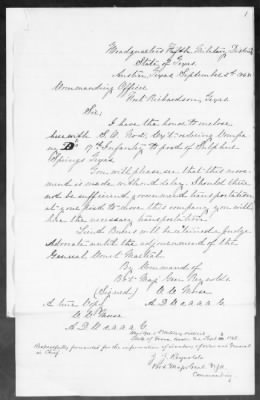 1
Headquarters Fifth Military District
State of Texas
Austin, Texas September
Commanding Officer
Fort Richardson, Texas
Sir:
I have the honor to enclose
herewith S.O. ordering Compa
ny D 17th Infantry to proceed Sulphur
Springs Texas
You will please see that this move
ment is made without delay. Should there
not be sufficient government transportation
at your post to move this company you will
hire the necessary transportation.
Lieut will be retained Judge
Advocate until the adjournment of the
General Court Martial.
By Command of
Bvt. Maj. Gen. Reynolds
(Signed)
A true Copy A.D.C. & A.A.A.G.
A.D.C. & A.A.A.G.
State of Texas
Respectfully forwarded for the information of General
in Chief.
J. J. Reynolds
Bvt Maj Genl U.S.A.
Commanding